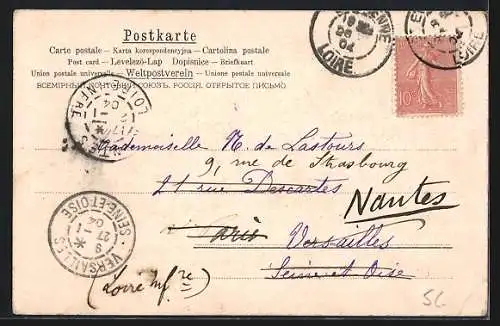 Postkarte
Carte postale — Karta korespondencyjna — Cartolina postale
Post card — Levelező-Lap Dopisnice — Briefkaart
Union postale universelle — Weltpostverein — Unione postale universale
ВСЕМІРНЫЙ ПОЧТОВЫЙ СОЮЗЪ. РОССІЯ. ОТКРЫТОЕ ПИСЬМО
LOIRE
04
LOIRE
10
Mademoiselle N. de Lastours
9, rue de Strasbourg
21 rue Descartes
Nantes
Paris Versailles
Seine et Oise
(Loire Infre)
VERSAILLES
SEINE-ET-OISE
9
27
04
56